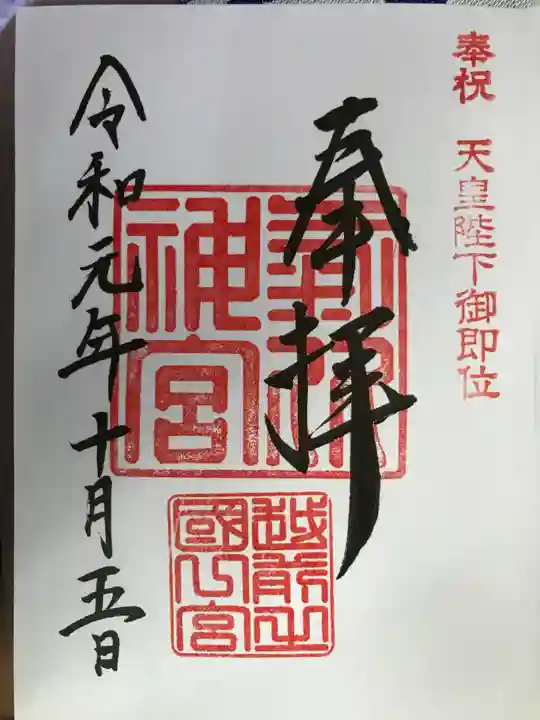 奉祝 天皇陛下御即位
奉拝
氣比神宮
越前之國一宮
令和元年十月五日